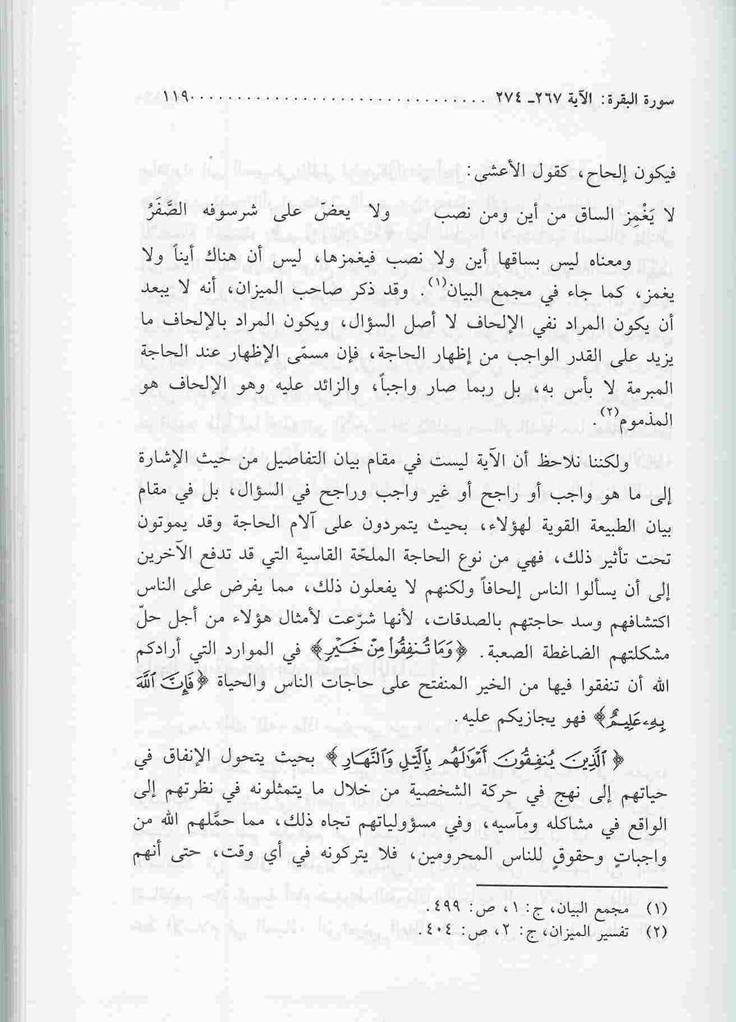 سورة البقرة: الآية ٢٦٧ـ ٢٧٤ ................................ ١١٩
فيكون إلحاح، كقول الأعشى:
لا يَغْمِز الساق من أين ومن نصب ولا يعضّ على شرسوفه الصَّفَرُ
ومعناه ليس بساقها أين ولا نصب فيغمزها، ليس أن هناك أيناً ولا
يغمز، كما جاء في مجمع البيان(١). وقد ذكر صاحب الميزان، أنه لا يبعد
أن يكون المراد نفي الإلحاف لا أصل السؤال، ويكون المراد بالإلحاف ما
يزيد على القدر الواجب من إظهار الحاجة، فإن مسمّى الإظهار عند الحاجة
المبرمة لا بأس به، بل ربما صار واجباً، والزائد عليه وهو الإلحاف هو
المذموم(٢).
ولكننا نلاحظ أن الآية ليست في مقام بيان التفاصيل من حيث الإشارة
إلى ما هو واجب أو راجح أو غير واجب وراجح في السؤال، بل في مقام
بيان الطبيعة القوية لهؤلاء، بحيث يتمردون على آلام الحاجة وقد يموتون
تحت تأثير ذلك، فهي من نوع الحاجة الملحّة القاسية التي قد تدفع الآخرين
إلى أن يسألوا الناس إلحافاً ولكنهم لا يفعلون ذلك، مما يفرض على الناس
اكتشافهم وسد حاجتهم بالصدقات، لأنها شرّعت لأمثال هؤلاء من أجل حلّ
مشكلتهم الضاغطة الصعبة. ﴿وَمَا تُنفِقُواْ مِنْ خَيْرٍ﴾ في الموارد التي أرادكم
الله أن تنفقوا فيها من الخير المنفتح على حاجات الناس والحياة ﴿فَإِنَّ ٱللَّهَ
بِهِۦ عَلِيمٌ﴾ فهو يجازيكم عليه.
﴿ٱلَّذِينَ يُنفِقُونَ أَمْوَٰلَهُم بِٱلَّيْلِ وَٱلنَّهَارِ﴾ بحيث يتحول الإنفاق في
حياتهم إلى نهج في حركة الشخصية من خلال ما يتمثلونه في نظرتهم إلى
الواقع في مشاكله ومآسيه، وفي مسؤولياتهم تجاه ذلك، مما حمَّلهم الله من
واجباتٍ وحقوقٍ للناس المحرومين، فلا يتركونه في أي وقت، حتى أنهم
(١) مجمع البيان، ج: ١، ص: ٤٩٩.
(٢) تفسير الميزان، ج: ٢، ص: ٤٠٤.